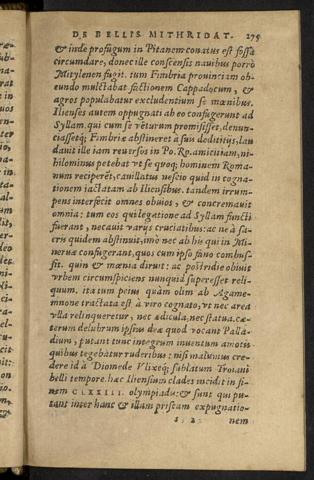 DE BELLIS MITHRIDAT. 275
& inde profugum in Pitanem conatus est fossa
circumdare, donec ille conscensis nauibus porrò
Mitylenen fugit. tum Fimbria prouinciam ob-
eundo mulctabat factionem Cappadocum, &
agros populabatur excludentium se mœnibus.
Ilienses autem oppugnati ab eo confugerunt ad
Syllam, qui cum se vēturum promisisset, denun-
ciassetq; Fimbriæ abstineret à suis dedititijs, lau
dauit ille iam reuersos in Po. Ro. amicitiam, ni-
hilominus petebat vt se quoq; hominem Roma-
num reciperēt, cauillatus nescio quid in cogna-
tionem iactatam ab Iliensibus. tandem irrum-
pens interfecit omnes obuios, & concremauit
omnia; tum eos qui legatione ad Syllam functi
fuerant, necauit varijs cruciatibus: ac ne à sa-
cris quidem abstinuit, imò nec ab his qui in Mi-
neruæ confugerant, quos cum ipso fano combus-
sit. quin & mœnia diruit: ac postridie obiuit
vrbem circumspiciens nunquid superesset reli-
quum. ita tum peius quàm olim ab Agame-
mnone tractata est à viro cognato, vt nec area
vlla relinqueretur, nec ædicula, nec statua. cæ-
terum delubrum ipsius deæ quod vocant Palla-
dium, putant tunc integrum inuentum amotis
quibus tegebatur ruderibus: nisi malumus cre-
dere id à Diomede Vlixeq; sublatum Troiani
belli tempore. hæc Iliensium clades incidit in fi-
nem CLXXIII. olympiadu: & sunt qui pu-
tant inter hanc & illam priscam expugnatio-
s. 2. nem